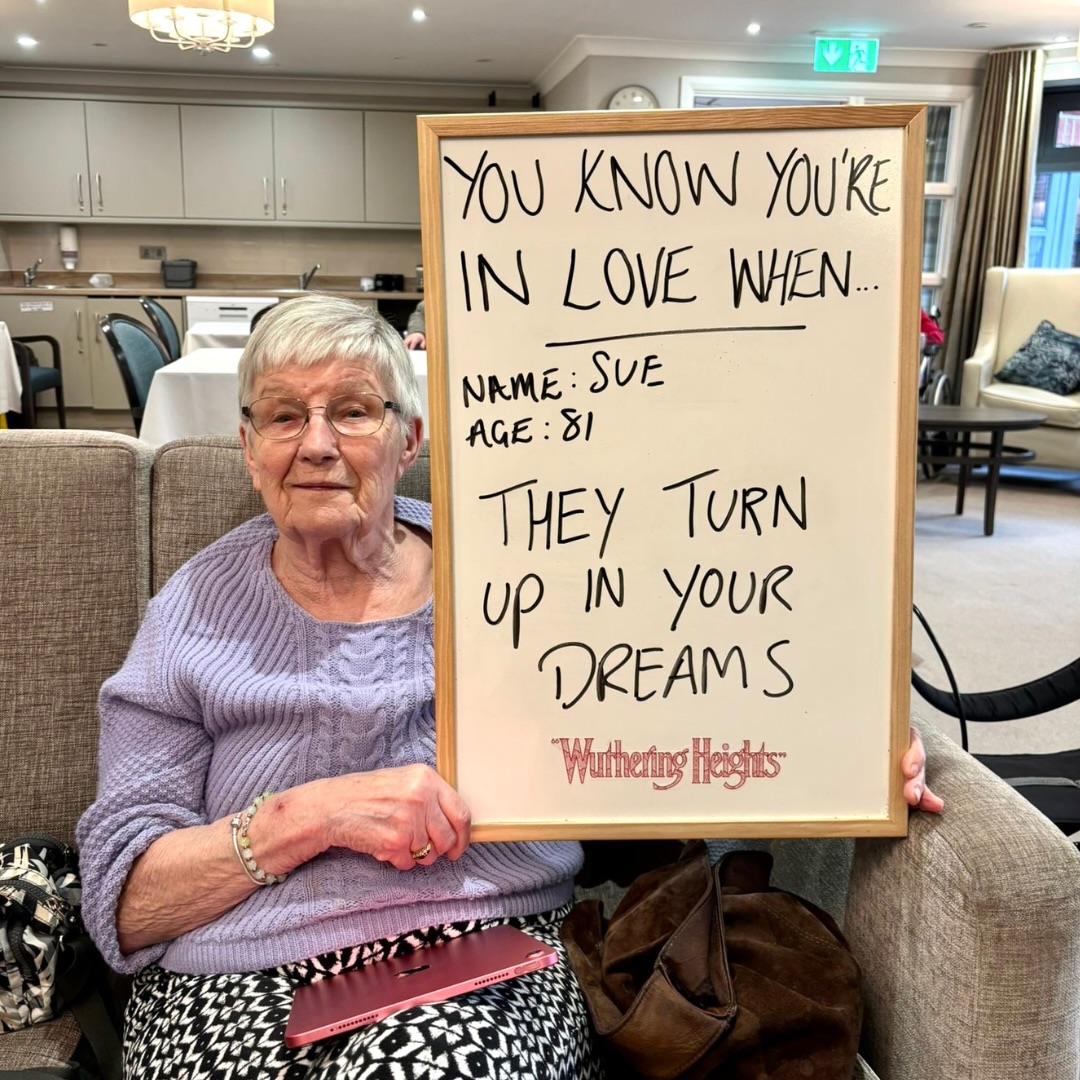 YOU KNOW YOU'RE
IN LOVE WHEN...
NAME: SUE
AGE: 81
THEY TURN
UP IN YOUR
DREAMS
"Wuthering Heights"